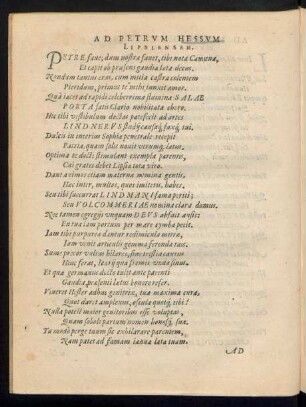 AD PETRVM HESSVM
LIPSIENSEM.
PETRE fave, dum vostra favet, tibi nota Camœna,
Et capit ob præsens gaudia lata decus.
Nondum tantus eras, cum culta castra colentem
Pieridum, primus te mihi junxit amor.
Quà jacet ad rapidi celeberrima flumina SALAE
PORTA satis Clario nobilitata choro.
Hic tibi vestibulum doctæ patefecit ad artes
LINDNERVS studij causaque faxque tui.
Dulcis in interius Sophia penetrale recepit
Patria, quam solis novit utrumque latus.
Optima te docti stimulant exempla parentis,
Cui gratos debet Lipsia tota viros.
Dant animos etiam materna nomina gentis,
Hac inter, multos, quos imiteris, habes.
Seu tibi succurrat LINDMANI fama petiti;
Seu VOLCOMMERIAE nomina clara domus.
Nec tamen egregijs unquam DEVS abfuit ausis:
En tua jam partum per mare cymba petit.
Iam tibi purpurea dantur redimicula mitræ,
Iam venit articulis gemma ferenda tuis.
Sume procur vultus hilares,
Huc ferat, lauriique fromis unda sinus.
Et qua germano dicte tuleante parenti
Gaudia præsenti latus honore refer.
Viveret Hesler adhuc genitrix, tua maxima cura,
Quot daret amplexus, osculaque quot tibi!
Nulla potest major genitoribus esse voluptas,
Quam soboli partum nomen honosque suæ.
Tu modò perge tuum sic exhilarare parentem,
Nam patet ad famam ianua lata tuam.
AD